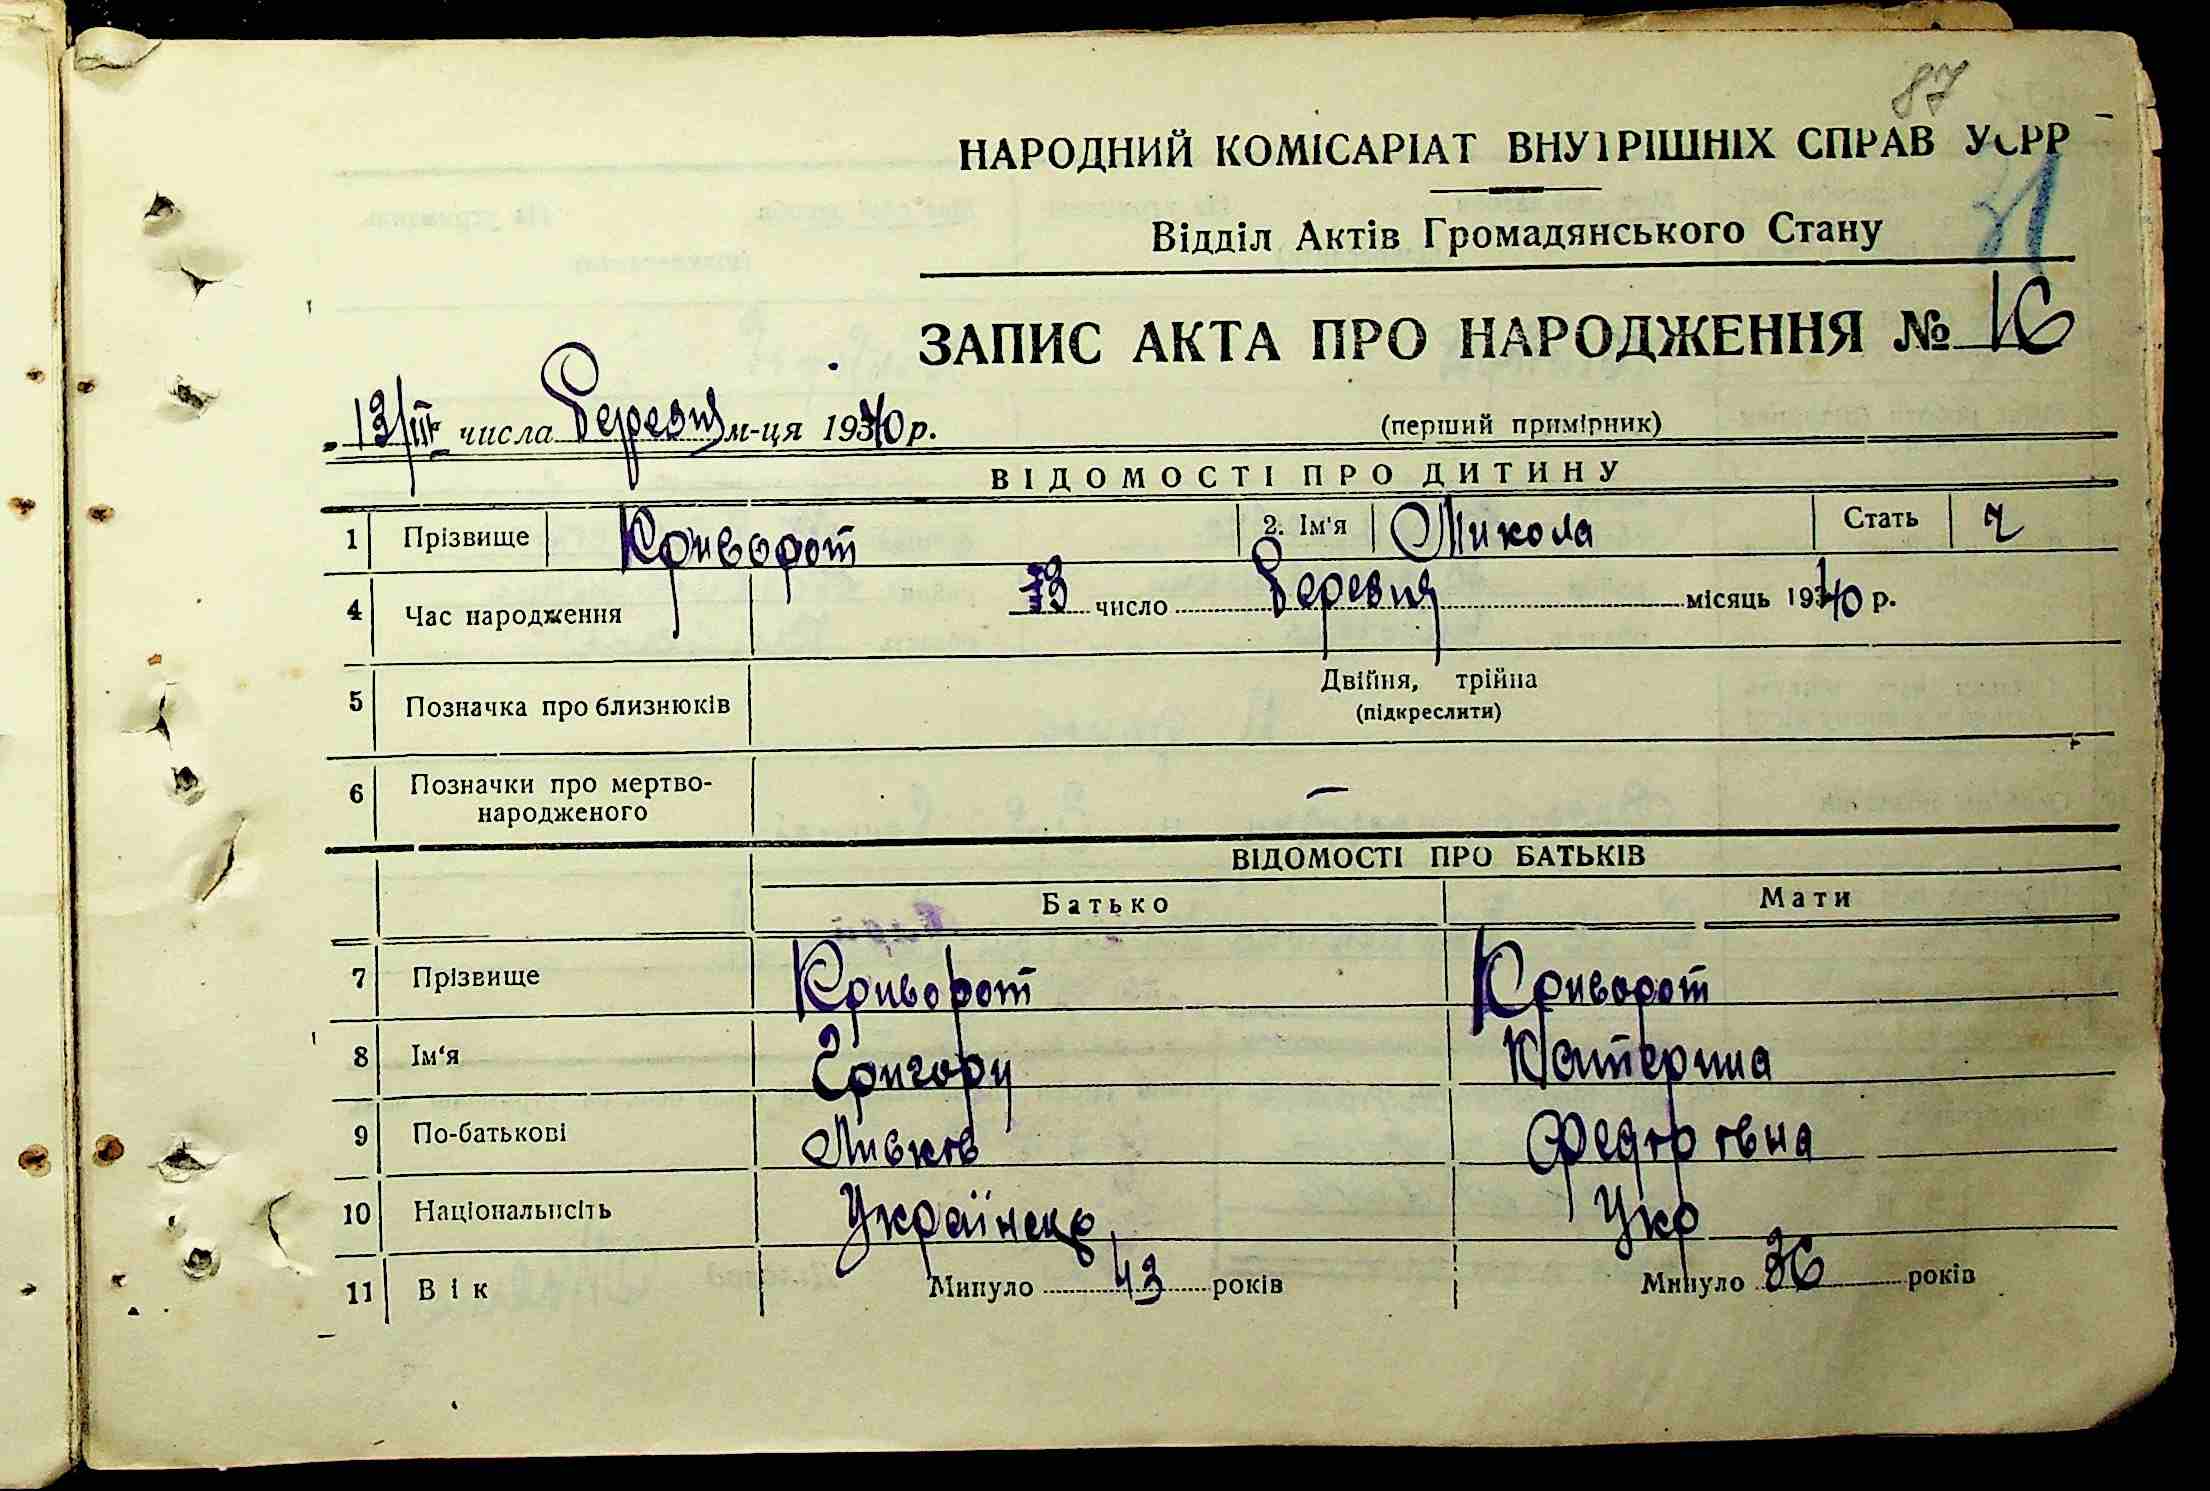 87
НАРОДНИЙ КОМІСАРІАТ ВНУТРІШНІХ СПРАВ УСРР
31
Відділ Актів Громадянського Стану
ЗАПИС АКТА ПРО НАРОДЖЕННЯ № 16
13/III числа березня м-ця 1940 р.
(перший примірник)
ВІДОМОСТІ ПРО ДИТИНУ
1 Прізвище Криворот 2. Ім'я Микола Стать ч
4 Час народження 13 число березня місяць 1940 р.
5 Позначка про близнюків Двійня, трійна
(підкреслити)
6 Позначки про мертво-
народженого —
ВІДОМОСТІ ПРО БАТЬКІВ
Батько Мати
7 Прізвище Криворот Криворот
8 Ім'я Григорій Катерина
9 По-батькові Федорівна
10 Національність Українець Укр
11 Вік Минуло 43 років Минуло 36 років